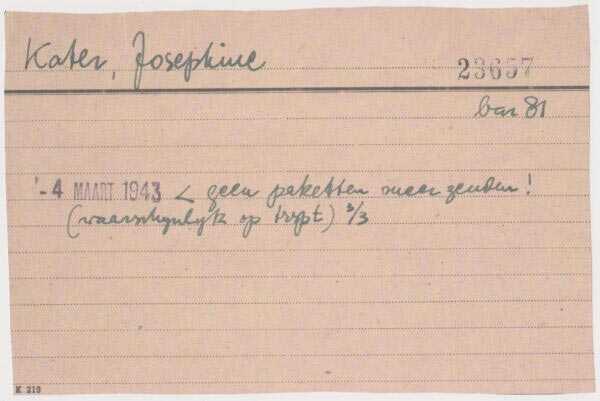 Kater, Josephine
23657
bar 81
- 4 MAART 1943 < geen paketten meer zenden!
(waarschynlyk op trspt.) 3/3
K 210